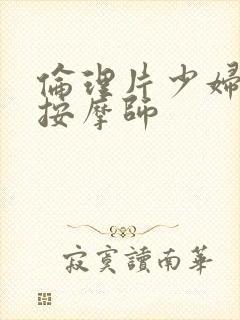 倫理片少婦
按摩師
寂寞讀南華